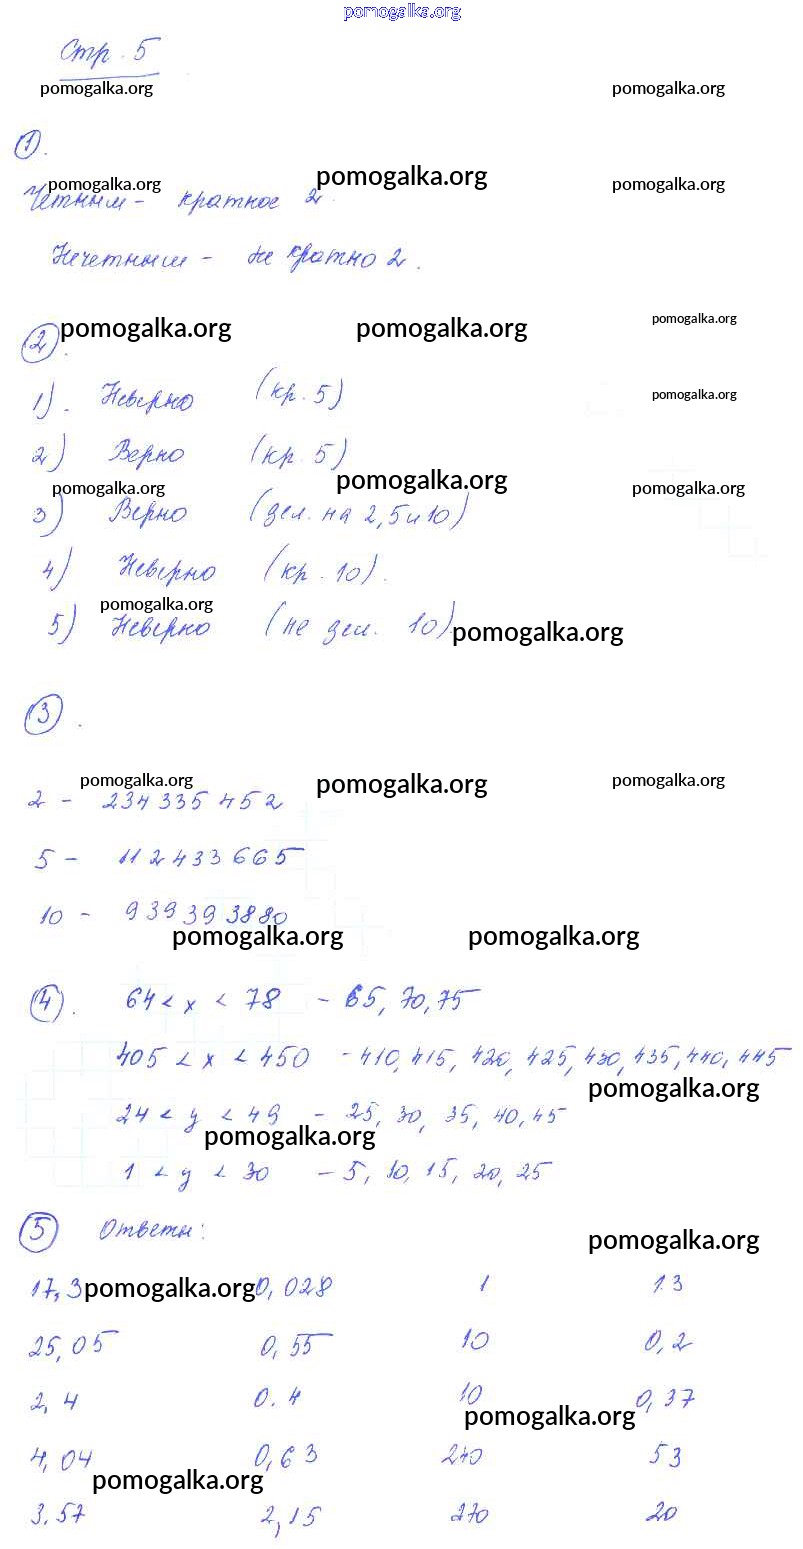 pomogalka.org
Стр. 5
pomogalka.org pomogalka.org
①.
pomogalka.org pomogalka.org pomogalka.org
Четным - кратное 2.
Нечетным - не кратно 2.
pomogalka.org pomogalka.org pomogalka.org
②.
1). Неверно (кр. 5)
pomogalka.org
2) Верно (кр. 5)
pomogalka.org pomogalka.org pomogalka.org
3) Верно (дел. на 2,5 и 10)
4) Неверно (кр. 10).
pomogalka.org
5) Неверно (не дел. 10).
pomogalka.org
③.
pomogalka.org pomogalka.org pomogalka.org
2 - 234 335 452
5 - 112 433 665
10 - 939 393 880
pomogalka.org pomogalka.org
④. 64 < x < 78 - 65, 70, 75
405 < x < 450 - 410, 415, 420, 425, 430, 435, 440, 445
pomogalka.org
24 < y < 49 - 25, 30, 35, 40, 45
pomogalka.org
1 < y < 30 - 5, 10, 15, 20, 25
⑤ Ответы:
pomogalka.org
17,3 pomogalka.org 0,028 1 13
25,05 0,55 10 0,2
2,4 0.4 10 0,37
pomogalka.org
4,04 0,63 240 53
pomogalka.org
3.57 2,15 270 20